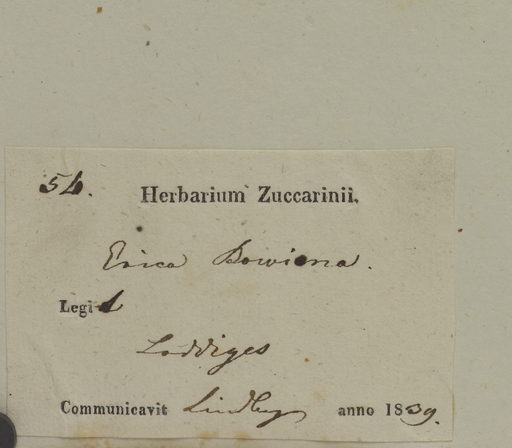 54. Herbarium Zuccarinii.
Erica Bowiena.
Legit
Loddiges
Communicavit Lindley anno 1839.